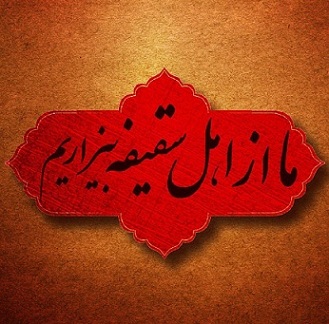 ما از اهل سقیفه بیزاریم